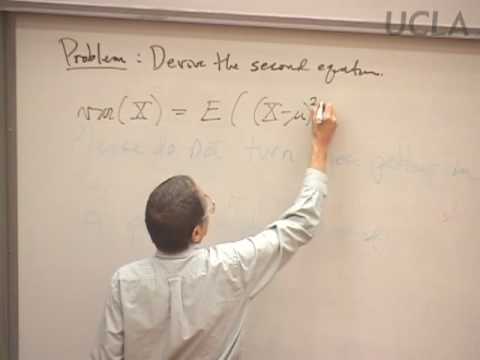 UCLA
Problem : Derive the second equation.
var(X) = E ( (X-μ)²
Please do not turn